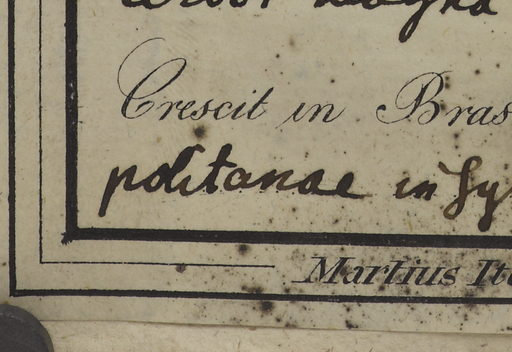 Crescit in Bras
politanae in Sy
Martius Ite